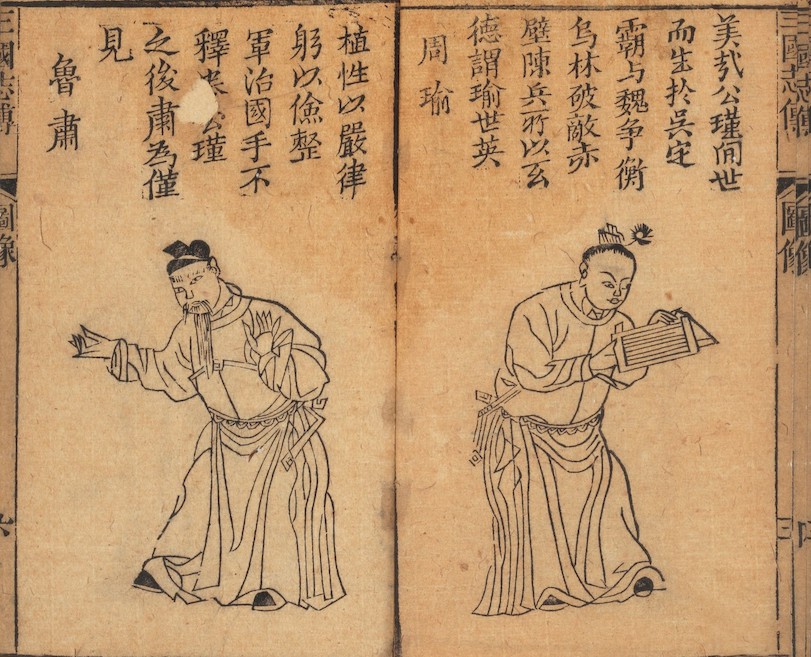 三國志傳
圖像
美哉公瑾间世
而生於吳定
霸与魏争衡
乌林破敵赤
壁陳兵所以玄
德謂瑜世英
周瑜
植性以嚴律
躬以儉整
軍治國手不
釋卷公瑾
之後肅為僅
見
魯肅
三國志傳
圖像
六